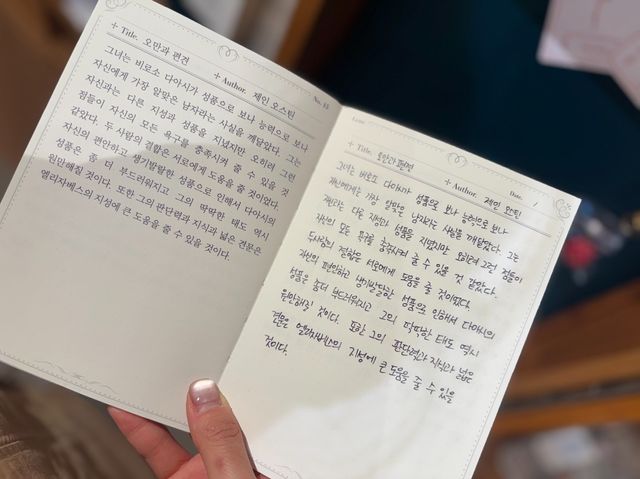 + Title. 오만과 편견
+ Author. 제인 오스틴
No. 33
그녀는 비로소 다아시가 성품으로 보나 능력으로 보나
자신에게 가장 알맞은 남자라는 사실을 깨달았다. 그는
자신과는 다른 지성과 성품을 지녔지만 오히려 그런
점들이 자신의 모든 욕구를 충족시켜 줄 수 있을 것
같았다. 두 사람의 결합은 서로에게 도움을 줄 것이었다.
자신의 편안하고 생기발랄한 성품으로 인해서 다아시의
성품은 좀 더 부드러워지고 그의 딱딱한 태도 역시
원만해질 것이다. 또한 그의 판단력과 지식과 넓은 견문은
엘리자베스의 지성에 큰 도움을 줄 수 있을 것이다.
+ Title. 오만과 편견
+ Author. 제인 오스틴
Date. /
그녀는 비로소 다아시가 성품으로 보나 능력으로 보나
자신에게는 가장 알맞은 남자라는 사실을 깨달았다. 그는
자신과는 다른 지성과 성품을 지녔지만 오히려 그런 점들이
자신의 모든 욕구를 충족시켜 줄 수 있을 것 같았다.
두사람의 결합은 서로에게 도움을 줄 것이었다.
자신의 편안하고 생기발랄한 성품으로 인해서 다아시의
성품은 좀더 부드러워지고 그의 딱딱한 태도 역시
원만해질 것이다. 또한 그의 판단력과 지식과 넓은
견문은 엘리자베스의 지성에 큰 도움을 줄 수 있을
것이다.